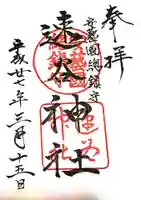 奉拝
安藝國総鎮守
速谷神社
平成廿七年三月十五日